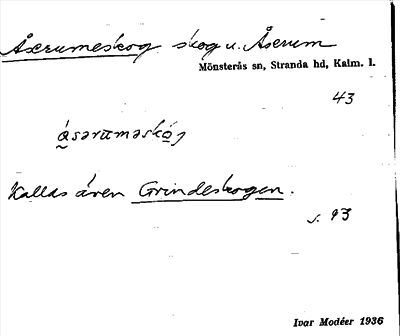 Åserumeskog skog u. Åserum
Mönsterås sn, Stranda hd, Kalm. l.
43
ásərūməskó̱ʒ
Kallas även Grindeskogen.
s. 93
Ivar Modéer 1936